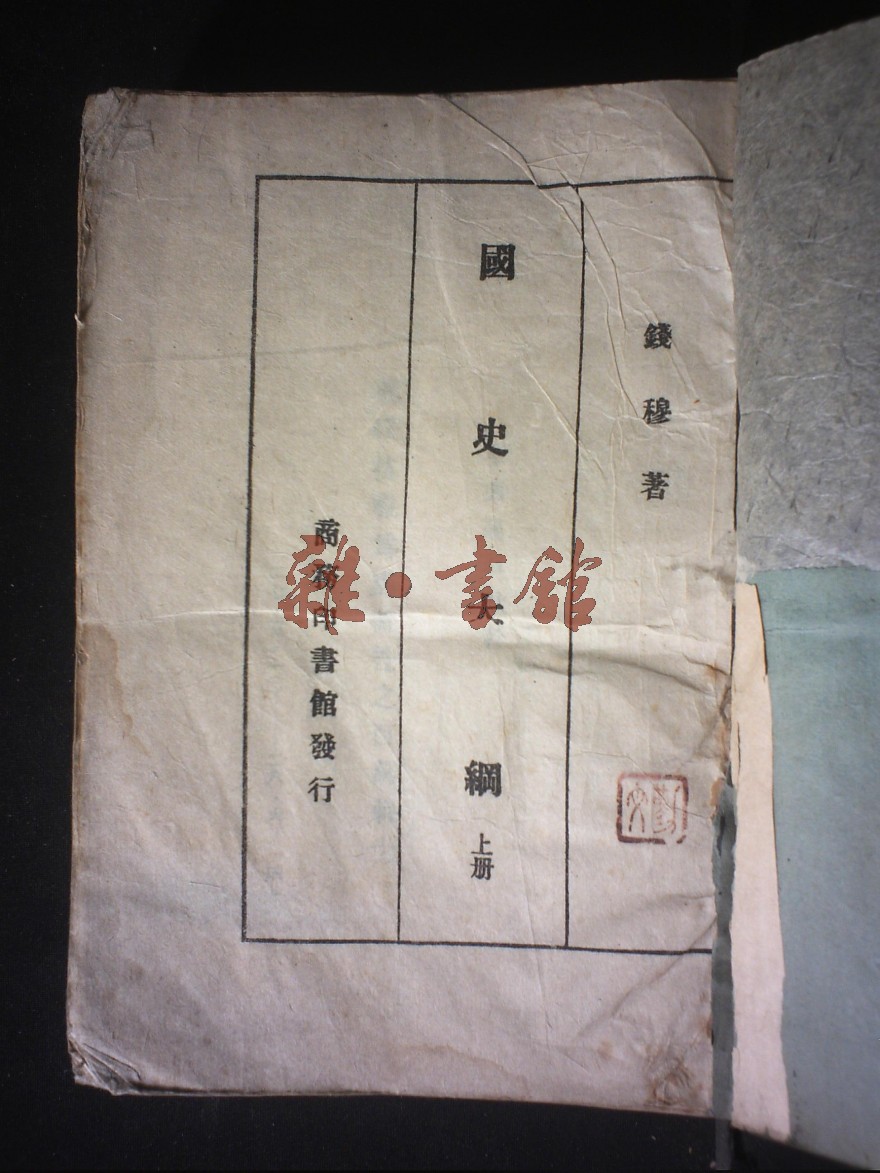 錢穆著
國史大綱
上册
商務印書館發行
雜·書館